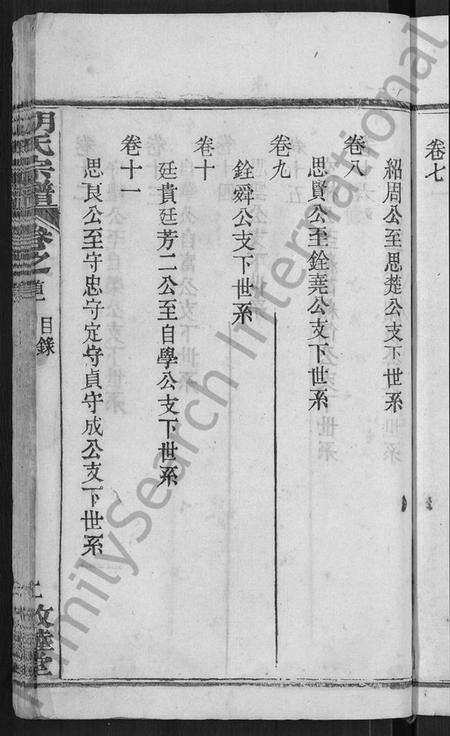 卷七
紹周公至思楚公支下世系
卷八
思賢公至銓堯公支下世系
卷九
銓舜公支下世系
卷十
廷貴廷芳二公至自學公支下世系
卷十一
思良公至守忠守定守貞守成公支下世系
胡氏宗譜 卷之首 目錄 敦睦堂
FamilySearch International